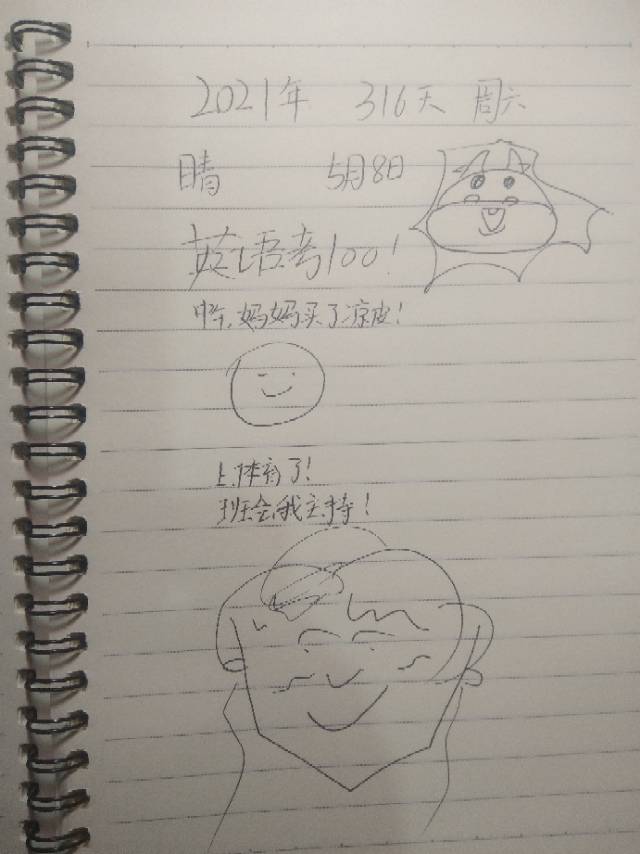 2021年 316天 周六
晴 5月8日
英语考100!
昨,妈妈买了凉皮!
上体育了!
班会,我主持!